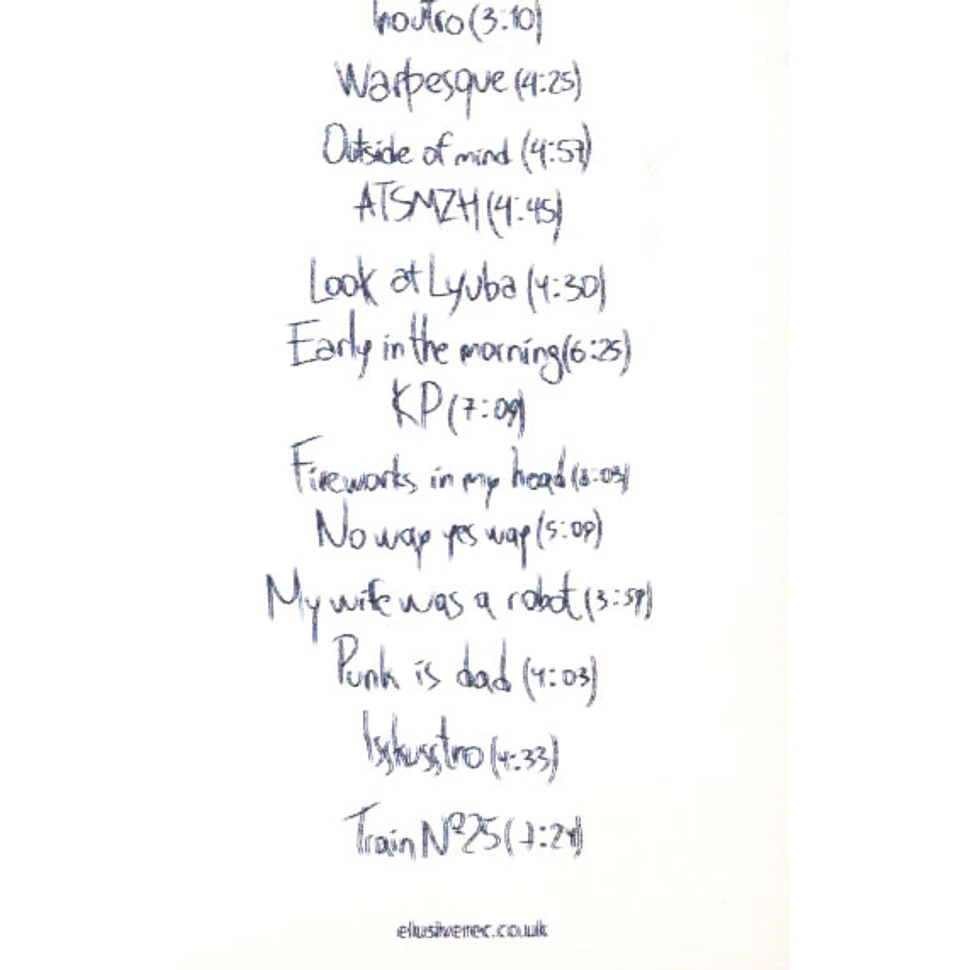 Inoutro (3:10)
Warpesque (4:25)
Outside of mind (4:57)
ATSMZH (4:45)
Look at Lyuba (4:30)
Early in the morning (6:25)
KP (7:09)
Fireworks in my head (8:03)
No way yes way (5:09)
My wife was a robot (3:59)
Punk is dad (4:03)
Isskusstno (4:33)
Train Nº25